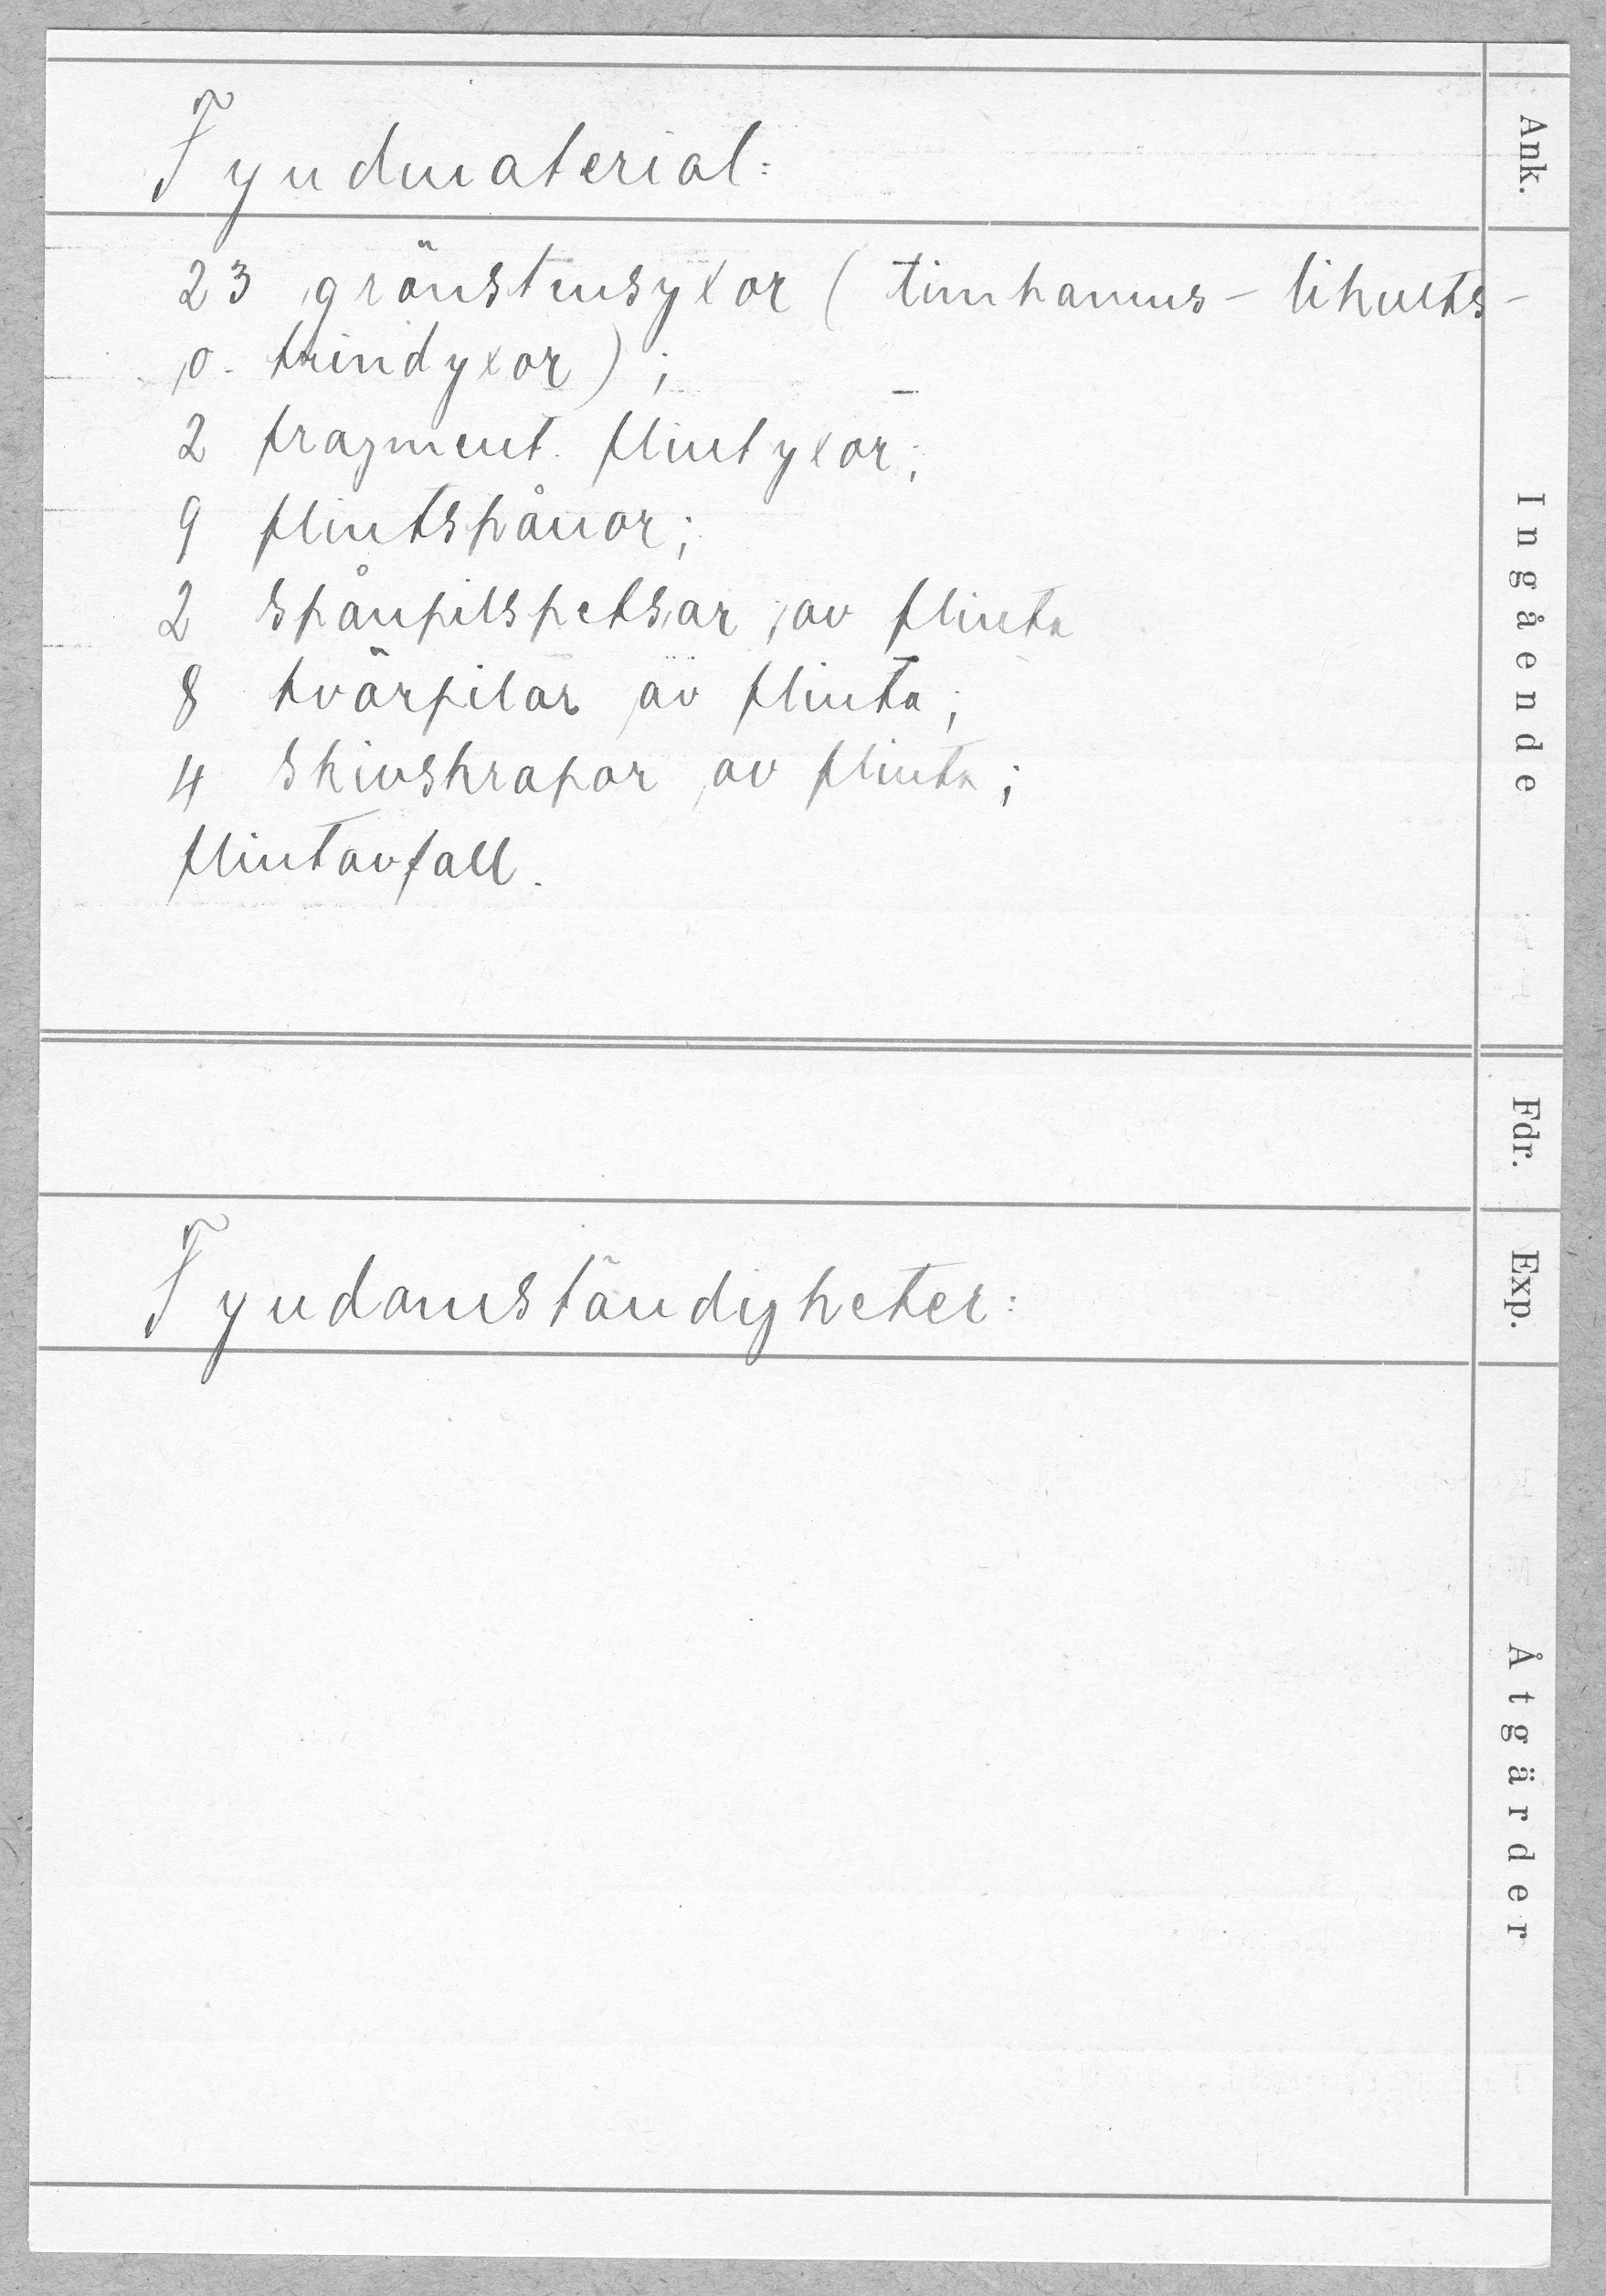 Fyndmaterial:
23 grönstensyxor ( limhamns- lihults-
o. trindyxor) ;
2 fragment. flintyxor;
9 flintspånor;
2 spånpilspetsar av flinta
8 tvärpilar av flinta;
4 skivskrapor av flinta;
flintavfall.
Fyndomständigheter:
Ank.
Ingående
Fdr.
Exp.
Åtgärder